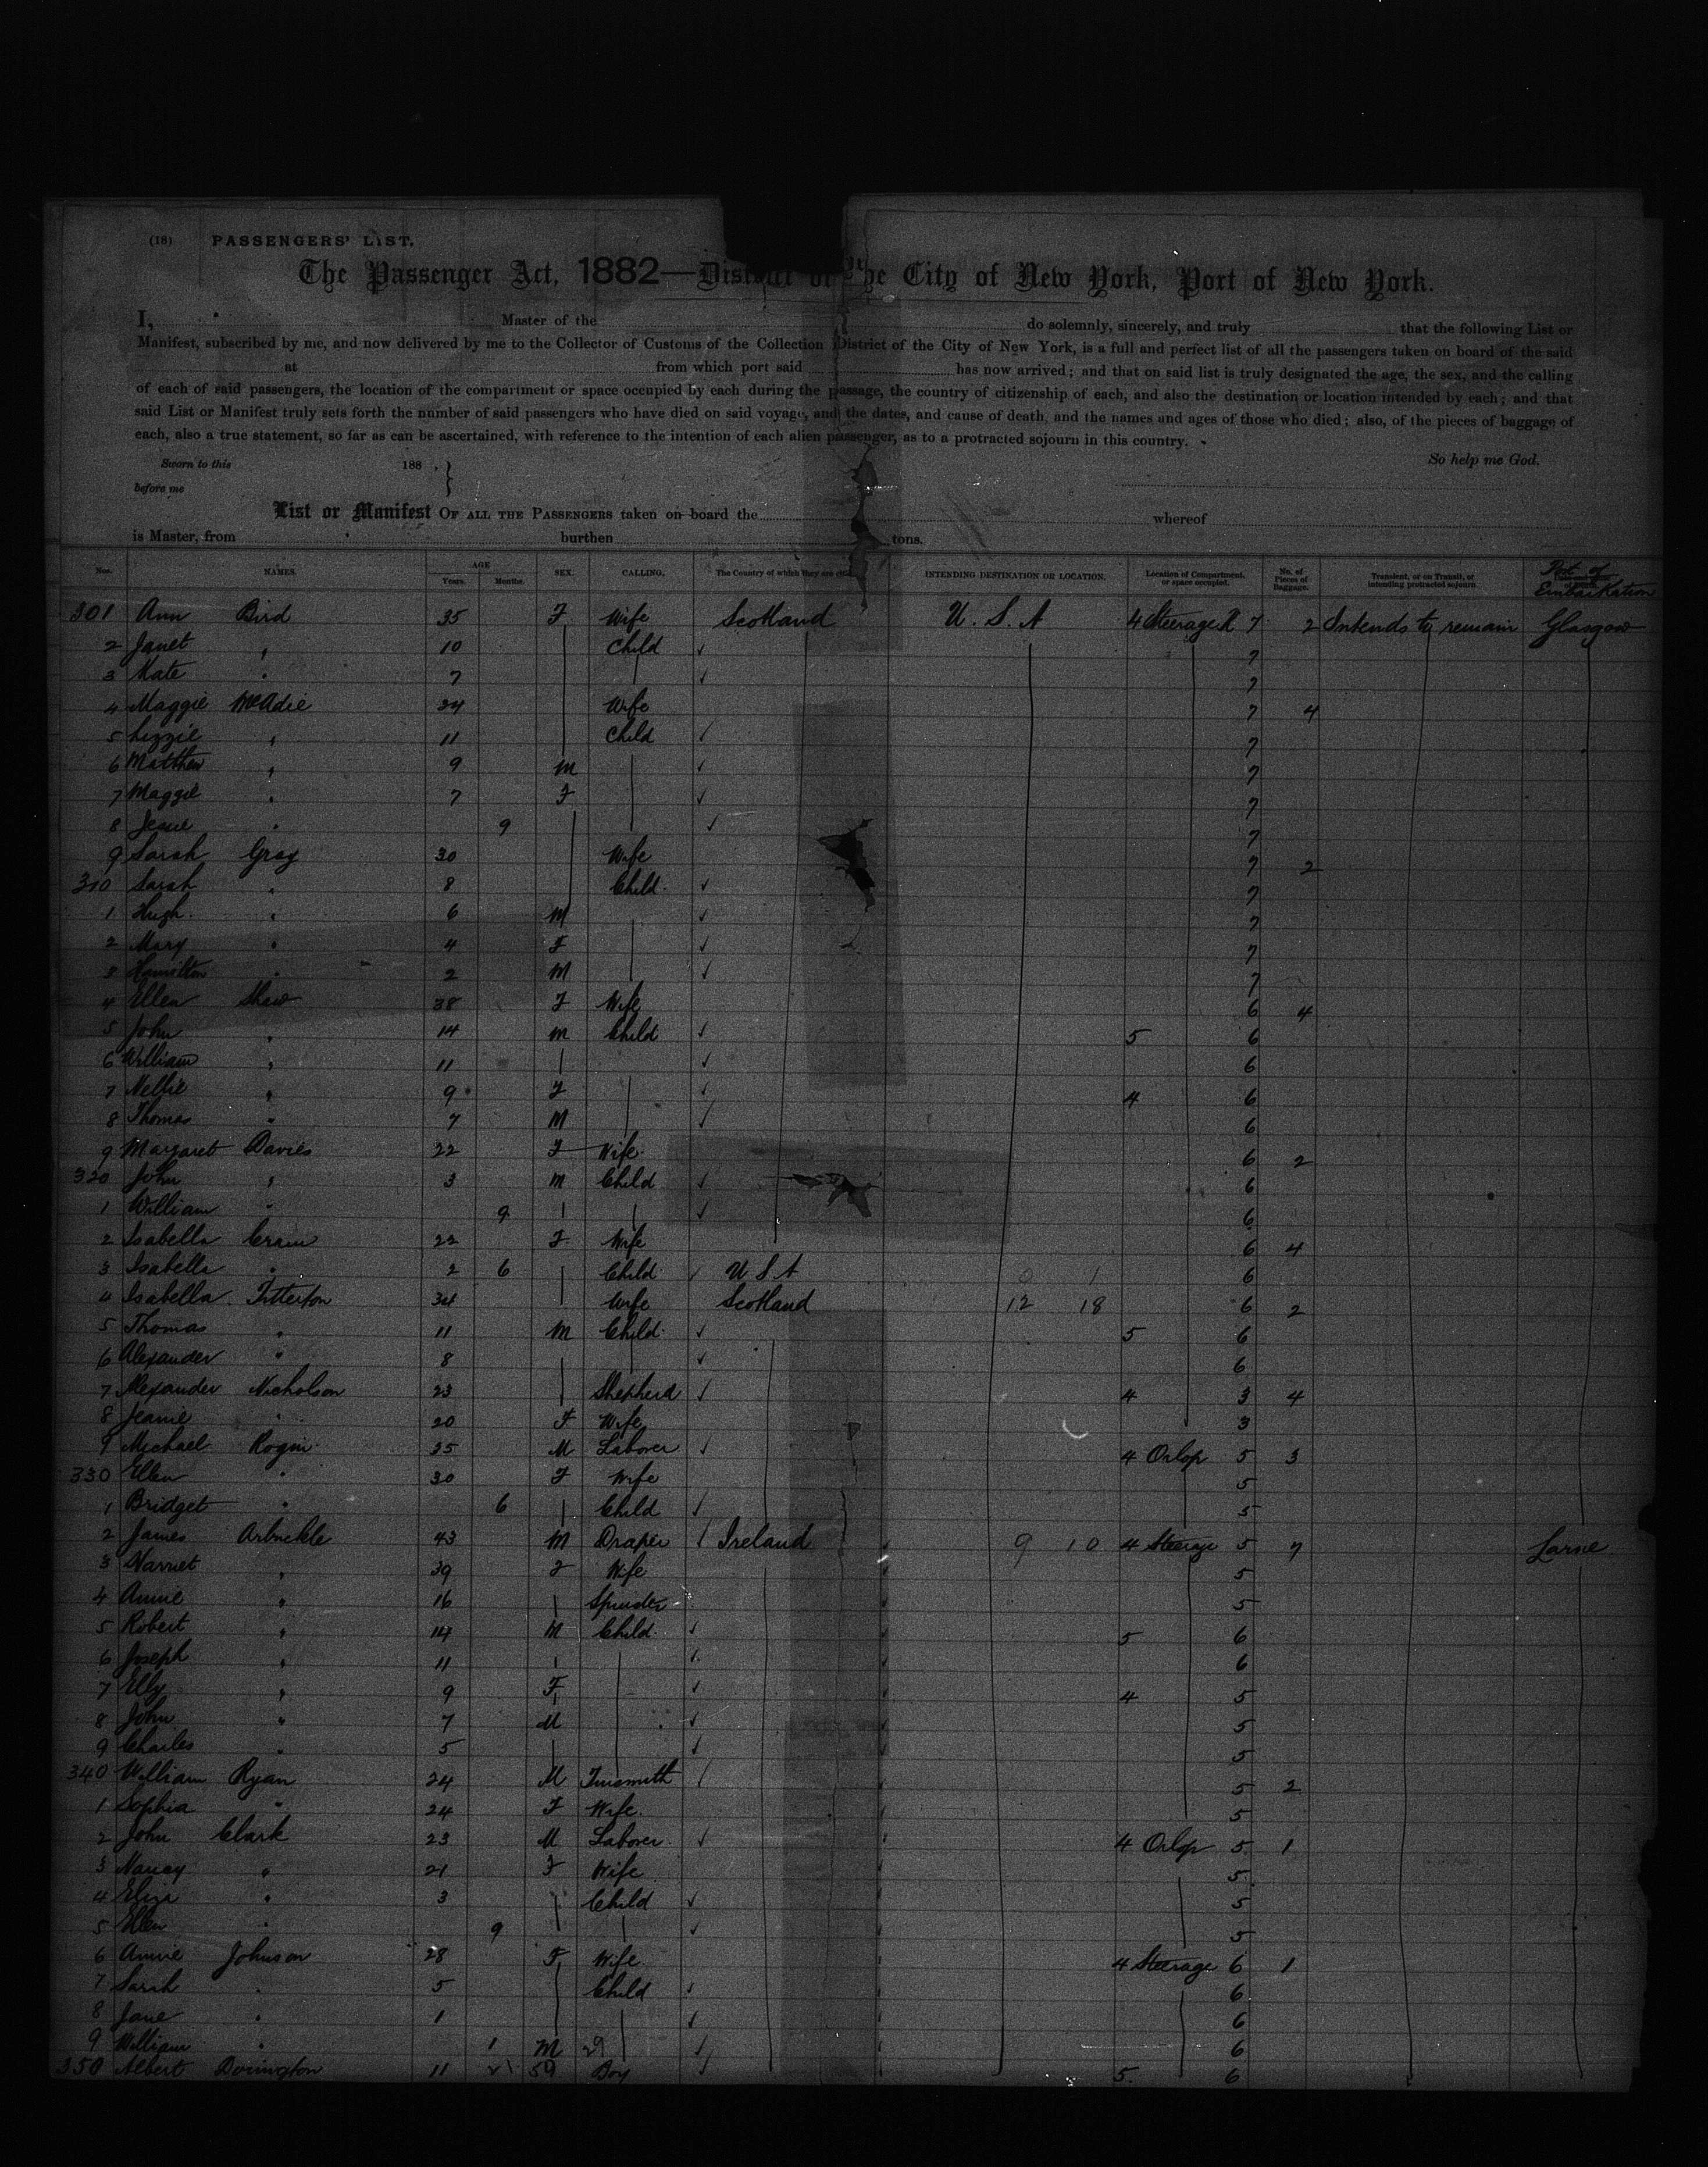 (18) PASSENGERS' LIST.
The Passenger Act, 1882—District of the City of New York, Port of New York.
I, Master of the do solemnly, sincerely, and truly that the following List or
Manifest, subscribed by me, and now delivered by me to the Collector of Customs of the Collection District of the City of New York, is a full and perfect list of all the passengers taken on board of the said
at from which port said has now arrived; and that on said list is truly designated the age, the sex, and the calling
of each of said passengers, the location of the compartment or space occupied by each during the passage, the country of citizenship of each, and also the destination or location intended by each; and that
said List or Manifest truly sets forth the number of said passengers who have died on said voyage, and the dates, and cause of death, and the names and ages of those who died; also, of the pieces of baggage of
each, also a true statement, so far as can be ascertained, with reference to the intention of each alien passenger, as to a protracted sojourn in this country.
So help me God.
Sworn to this 188 ,
before me
List or Manifest OF ALL THE PASSENGERS taken on board the whereof
is Master, from burthen tons.
Nos. NAMES. AGE Years. Months. SEX. CALLING. The Country of which they are INTENDING DESTINATION OR LOCATION. Location of Compartment, or space occupied. No. of Pieces of Baggage. Transient, or on Transit, or intending protracted sojourn Port of Embarkation
301 Ann Bird 35 F Wife Scotland U.S.A 4 Steerage 7 2 Intends to remain Glasgow
2 Janet " 10 Child ✓ 7
3 Kate " 7 ✓ 7
4 Maggie McAdie 34 Wife 7 4
5 Lizzie " 11 Child ✓ 7
6 Matthew " 9 M ✓ 7
7 Maggie " 7 F ✓ 7
8 Jessie " 9 ✓ 7
9 Sarah Gray 30 Wife 7 2
310 Sarah " 8 Child ✓ 7
1 Hugh " 6 M ✓ 7
2 Mary " 4 F ✓ 7
3 Hamilton " 2 M ✓ 7
4 Ellen Shaw 38 F Wife 6 4
5 John " 14 M Child ✓ 5 6
6 William " 11 ✓ 6
7 Nellie " 9 F ✓ 4 6
8 Thomas " 7 M ✓ 6
9 Margaret Davies 22 F Wife 6 2
320 John " 3 M Child ✓ 6
1 William " 9 ✓ 6
2 Isabella 22 F Wife 6 4
3 Isabella " 2 6 Child ✓ U S A 0 1 6
4 Isabella Titterton 34 Wife Scotland 12 18 6 2
5 Thomas " 11 M Child ✓ 5 6
6 Alexander " 8 ✓ 6
7 Alexander Nicholson 23 Shepherd ✓ 4 3 4
8 Jeanie " 20 F Wife 3
9 Michael 35 M Laborer ✓ 4 Orlop 5 3
330 Ellen " 30 F Wife 5
1 Bridget " 6 Child ✓ 5
2 James Arbuckle 43 M Draper ✓ Ireland 9 10 4 Steerage 5 7 Larne
3 Harriet " 39 F Wife 5
4 Annie " 16 Spinster 5
5 Robert " 14 M Child ✓ 5 6
6 Joseph " 11 ✓ 6
7 Elly " 9 F ✓ 4 5
8 John " 7 M ✓ 5
9 Charles " 5 ✓ 5
340 William Ryan 24 M Tinsmith ✓ 5 2
1 Sophia " 24 F Wife 5
2 John Clark 23 M Laborer ✓ 4 Orlop 5 1
3 Nancy " 21 F Wife 5
4 Eliza " 3 Child ✓ 5
5 Ellen " 9 ✓ 5
6 Annie Johnson 28 F Wife 4 Steerage 6 1
7 Sarah " 5 Child ✓ 6
8 Jane " 1 ✓ 6
9 William " 1 M 29 ✓ 6
350 Albert Dorrington 11 21 59 Boy ✓ 5 6